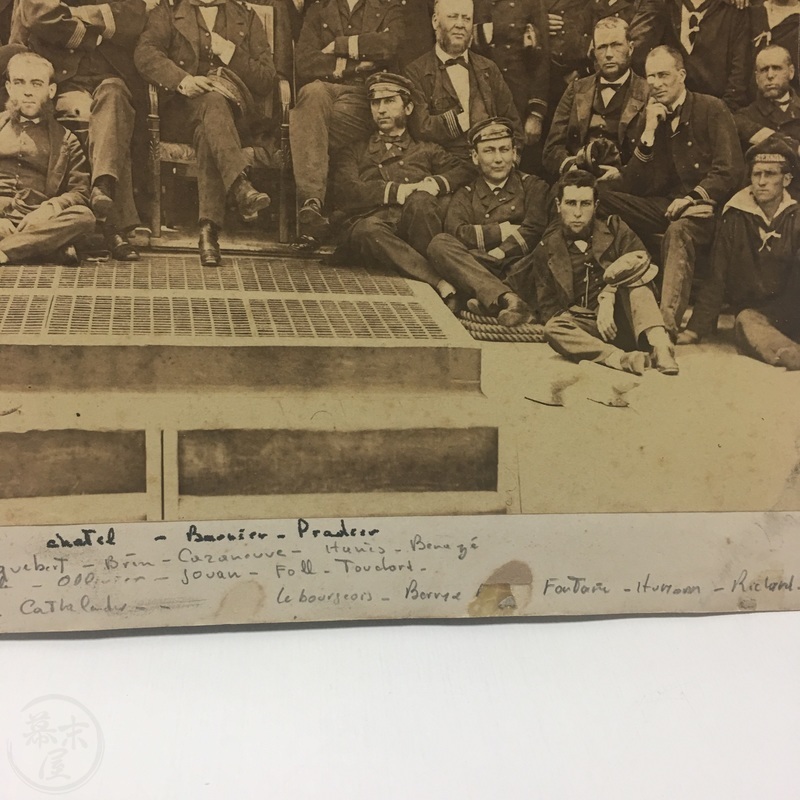 chatel - Barnier - Pradier
quebert - Brin - Cazaneuve - Hunis - Benazé
- Ollivier - Jouan - Foll - Touchard -
Lebourgeois - Fontaine - Humann - Richard -
幕末
屋